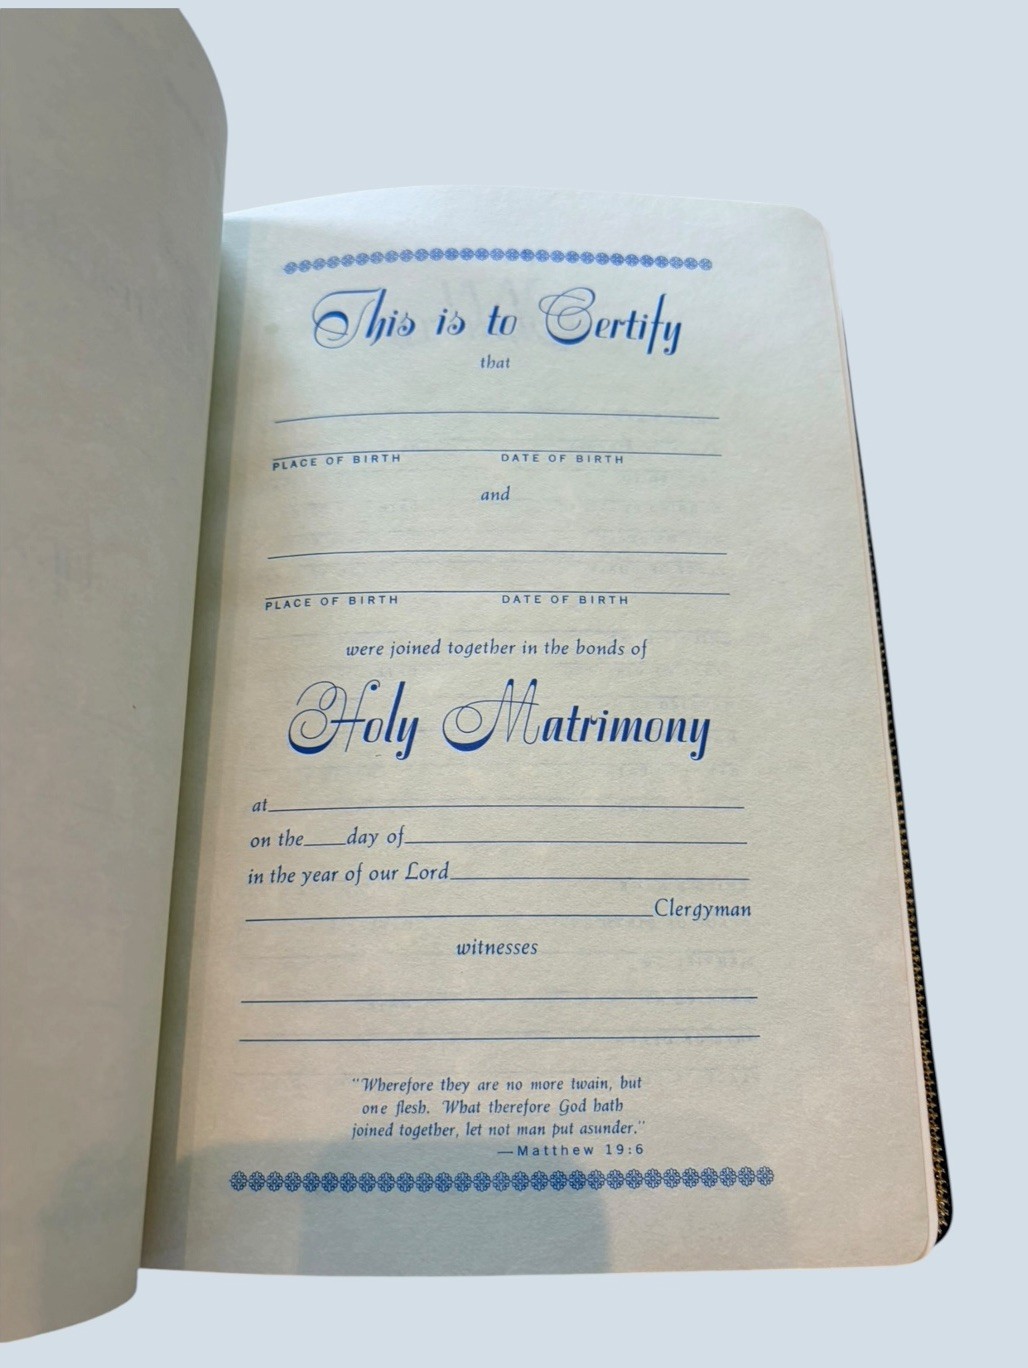 This is to Certify
that
PLACE OF BIRTH DATE OF BIRTH
and
PLACE OF BIRTH DATE OF BIRTH
were joined together in the bonds of
Holy Matrimony
at
on the day of
in the year of our Lord
Clergyman
witnesses
"Wherefore they are no more twain, but
one flesh. What therefore God hath
joined together, let not man put asunder."
—Matthew 19:6